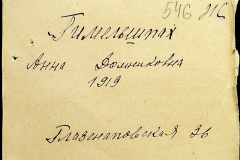 546 21С
Гимельшпах
Анна Доминиковна
1919
Глазенаповская 36